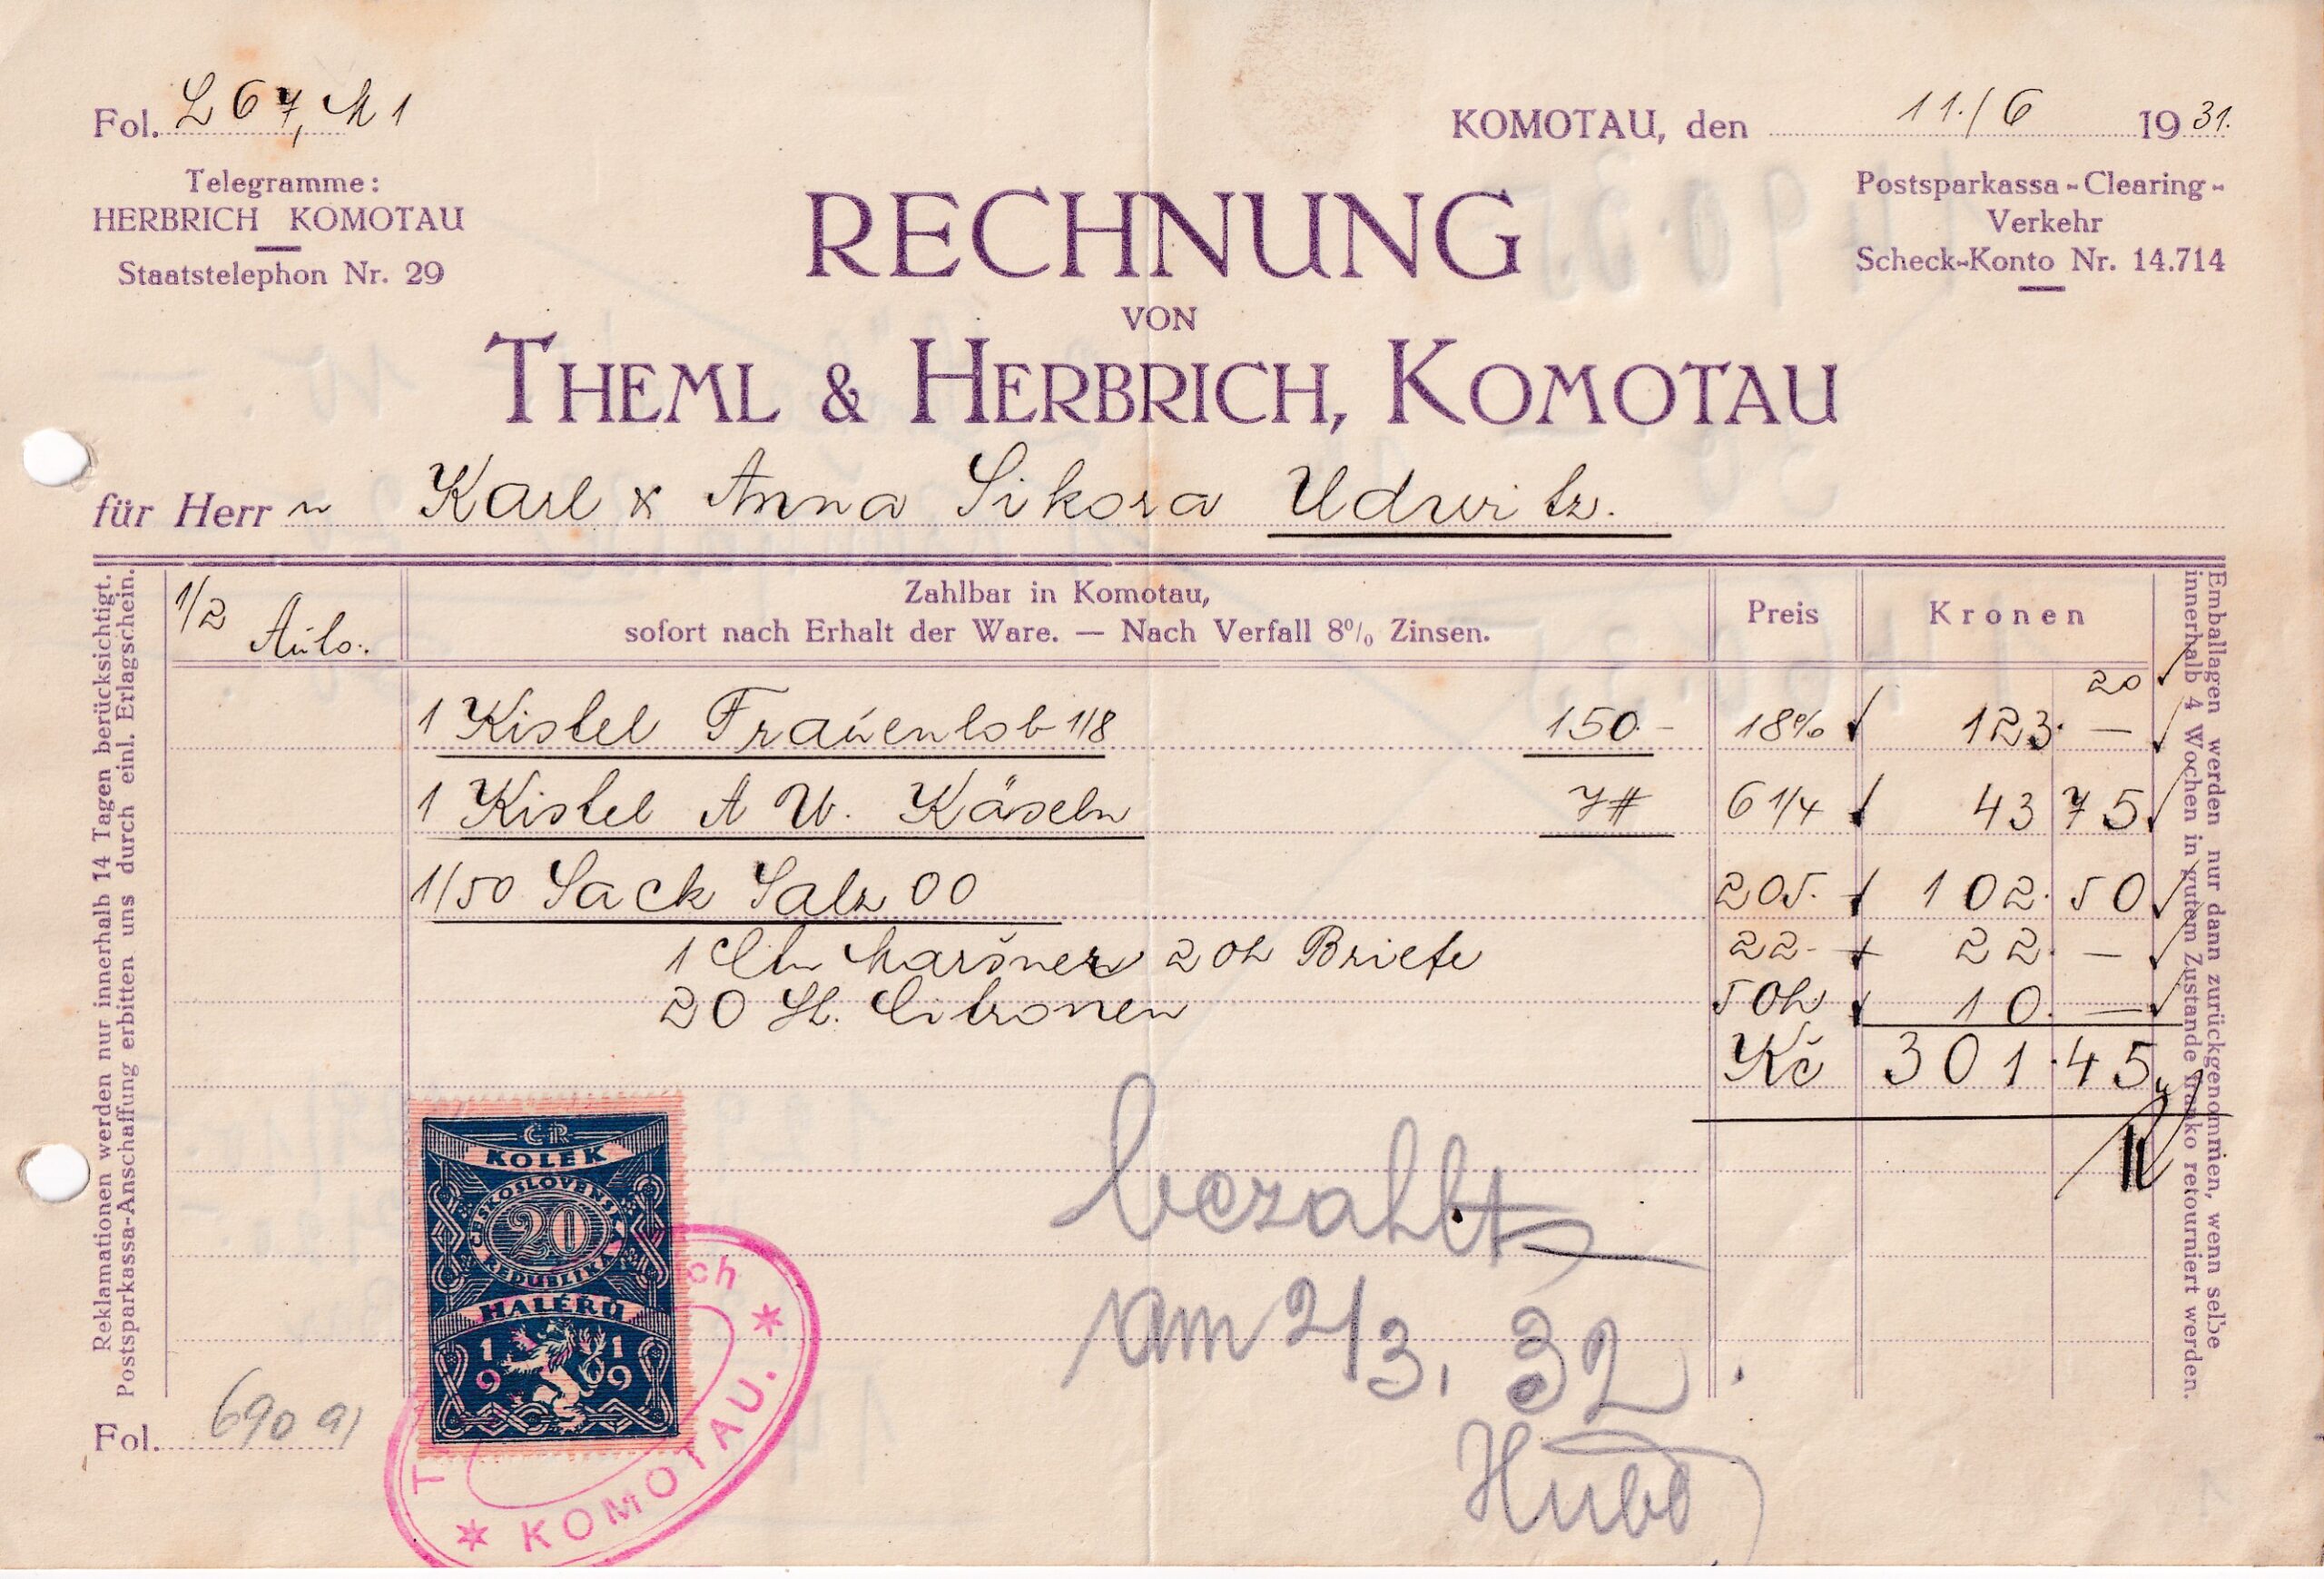 Fol. L 67, M 1
KOMOTAU, den 11./6 1931.
Telegramme:
HERBRICH KOMOTAU
Staatstelephon Nr. 29
Postsparkassa-Clearing-
Verkehr
Scheck-Konto Nr. 14.714
RECHNUNG
VON
THEML & HERBRICH, KOMOTAU
für Herr n Karl & Anna Sikora Udwitz.
Reklamationen werden nur innerhalb 14 Tagen berücksichtigt.
Postsparkassa-Anschaffung erbitten uns durch einl. Erlagschein.
1/2 Auto.
Zahlbar in Komotau,
sofort nach Erhalt der Ware. — Nach Verfall 8% Zinsen.
Preis
Kronen
20
1 Kistel Frauenlob 1/8 150.- 18% 123. —
1 Kistel A W. Käseln 7# 6 1/4 43 75
1/50 Sack Salz 00 205. 102. 50
1 20h Briefe 22.- 22. —
20 St. Citronen 50h 10. —
Kč 301.45
Emballagen werden nur dann zurückgenommen, wenn selbe
innerhalb 4 Wochen in gutem Zustande franko retourniert werden.
ČR
KOLEK
ČESKOSLOVENSKÁ
20
REPUBLIKA
HALÉŘŮ
1919
ch
T
* KOMOTAU. *
bezahlt
am 2/3. 32
Fol. 690 91